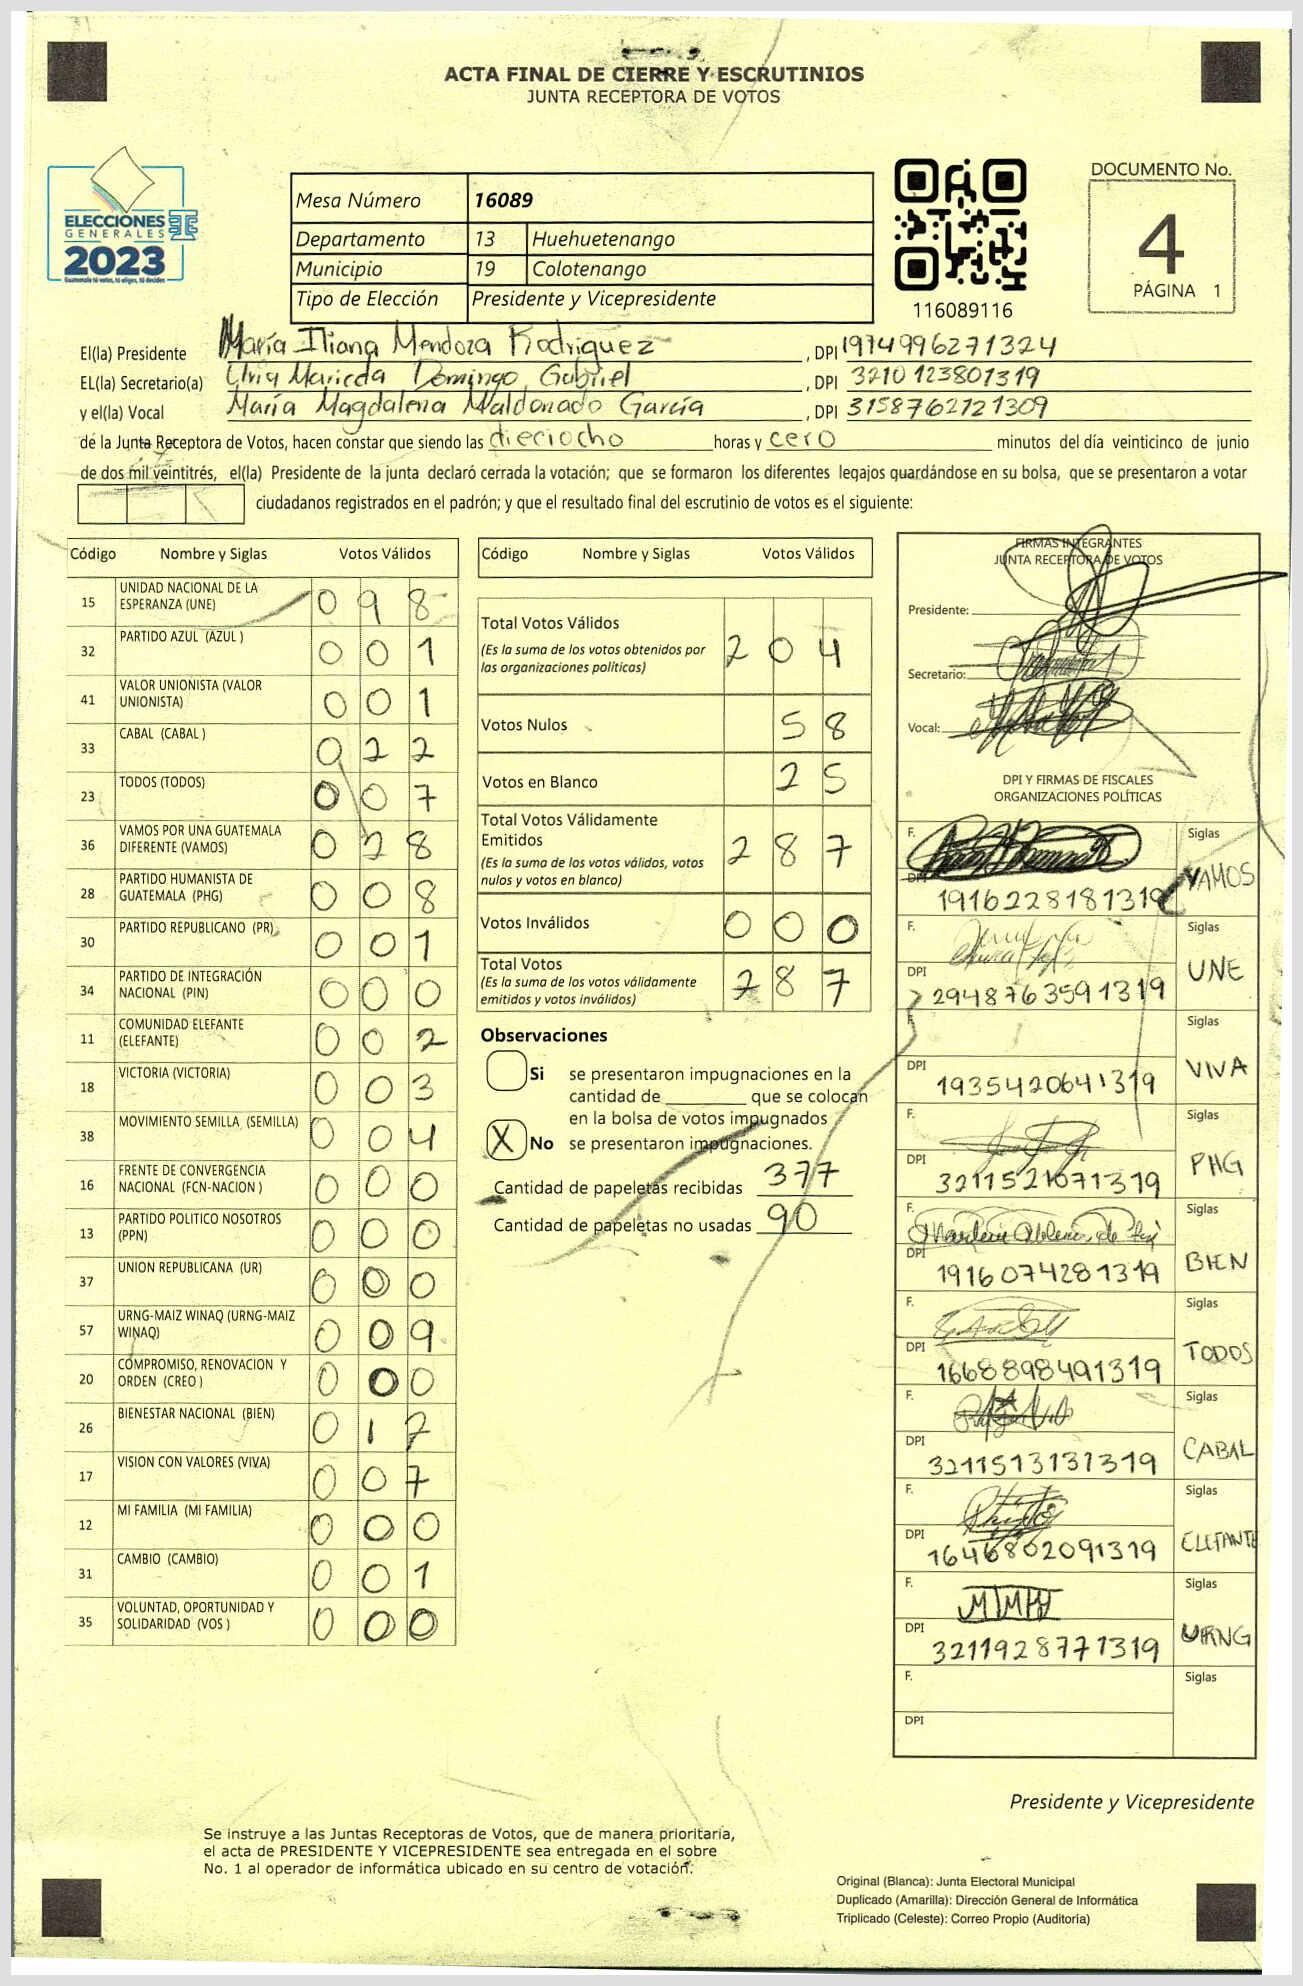 ACTA FINAL DE CIERRE Y ESCRUTINIOS
JUNTA RECEPTORA DE VOTOS
ELECCIONES
GENERALES
2023
Guatemala tú votas, tú eliges, tú decides
Mesa Número 16089
Departamento 13 Huehuetenango
Municipio 19 Colotenango
Tipo de Elección Presidente y Vicepresidente
116089116
DOCUMENTO No.
4
PÁGINA 1
El(la) Presidente María Iliana Mendoza Rodriguez, DPI 1974996271324
EL(la) Secretario(a) Domingo Gabriel, DPI 3210123801319
y el(la) Vocal María Magdalena Maldonado García, DPI 3158762121309
de la Junta Receptora de Votos, hacen constar que siendo las dieciocho horas y cero minutos del día veinticinco de junio
de dos mil veintitrés, el(la) Presidente de la junta declaró cerrada la votación; que se formaron los diferentes legajos guardándose en su bolsa, que se presentaron a votar
ciudadanos registrados en el padrón; y que el resultado final del escrutinio de votos es el siguiente:
Código Nombre y Siglas Votos Válidos
15 UNIDAD NACIONAL DE LA ESPERANZA (UNE) 0 9 8
32 PARTIDO AZUL (AZUL ) 0 0 1
41 VALOR UNIONISTA (VALOR UNIONISTA) 0 0 1
33 CABAL (CABAL ) 0 2 2
23 TODOS (TODOS) 0 0 7
36 VAMOS POR UNA GUATEMALA DIFERENTE (VAMOS) 0 2 8
28 PARTIDO HUMANISTA DE GUATEMALA (PHG) 0 0 8
30 PARTIDO REPUBLICANO (PR) 0 0 1
34 PARTIDO DE INTEGRACIÓN NACIONAL (PIN) 0 0 0
11 COMUNIDAD ELEFANTE (ELEFANTE) 0 0 2
18 VICTORIA (VICTORIA) 0 0 3
38 MOVIMIENTO SEMILLA (SEMILLA) 0 0 4
16 FRENTE DE CONVERGENCIA NACIONAL (FCN-NACION ) 0 0 0
13 PARTIDO POLITICO NOSOTROS (PPN) 0 0 0
37 UNION REPUBLICANA (UR) 0 0 0
57 URNG-MAIZ WINAQ (URNG-MAIZ WINAQ) 0 0 9
20 COMPROMISO, RENOVACION Y ORDEN (CREO ) 0 0 0
26 BIENESTAR NACIONAL (BIEN) 0 1 7
17 VISION CON VALORES (VIVA) 0 0 7
12 MI FAMILIA (MI FAMILIA) 0 0 0
31 CAMBIO (CAMBIO) 0 0 1
35 VOLUNTAD, OPORTUNIDAD Y SOLIDARIDAD (VOS ) 0 0 0
Código Nombre y Siglas Votos Válidos
Total Votos Válidos 2 0 4
(Es la suma de los votos obtenidos por
las organizaciones políticas)
Votos Nulos 5 8
Votos en Blanco 2 5
Total Votos Válidamente
Emitidos 2 8 7
(Es la suma de los votos válidos, votos
nulos y votos en blanco)
Votos Inválidos 0 0 0
Total Votos 2 8 7
(Es la suma de los votos válidamente
emitidos y votos inválidos)
Observaciones
Si se presentaron impugnaciones en la
cantidad de ________ que se colocan
en la bolsa de votos impugnados
X No se presentaron impugnaciones.
Cantidad de papeletas recibidas 377
Cantidad de papeletas no usadas 90
FIRMAS INTEGRANTES
JUNTA RECEPTORA DE VOTOS
Presidente:
Secretario:
Vocal:
DPI Y FIRMAS DE FISCALES
ORGANIZACIONES POLÍTICAS
F. Siglas
DPI 1916228181319 VAMOS
F. Siglas
DPI 2948763591319 UNE
F. Siglas
DPI 1935420641319 VIVA
F. Siglas
DPI 3211521071319 PHG
F. Siglas
DPI 1916074281319 BIEN
F. Siglas
DPI 1668898491319 TODOS
F. Siglas
DPI 3211513131319 CABAL
F. Siglas
DPI 1646802091319 ELEFANTE
F. Siglas
DPI 3211928771319 URNG
F. Siglas
DPI
Presidente y Vicepresidente
Se instruye a las Juntas Receptoras de Votos, que de manera prioritaria,
el acta de PRESIDENTE Y VICEPRESIDENTE sea entregada en el sobre
No. 1 al operador de informática ubicado en su centro de votación.
Original (Blanca): Junta Electoral Municipal
Duplicado (Amarilla): Dirección General de Informática
Triplicado (Celeste): Correo Propio (Auditoría)